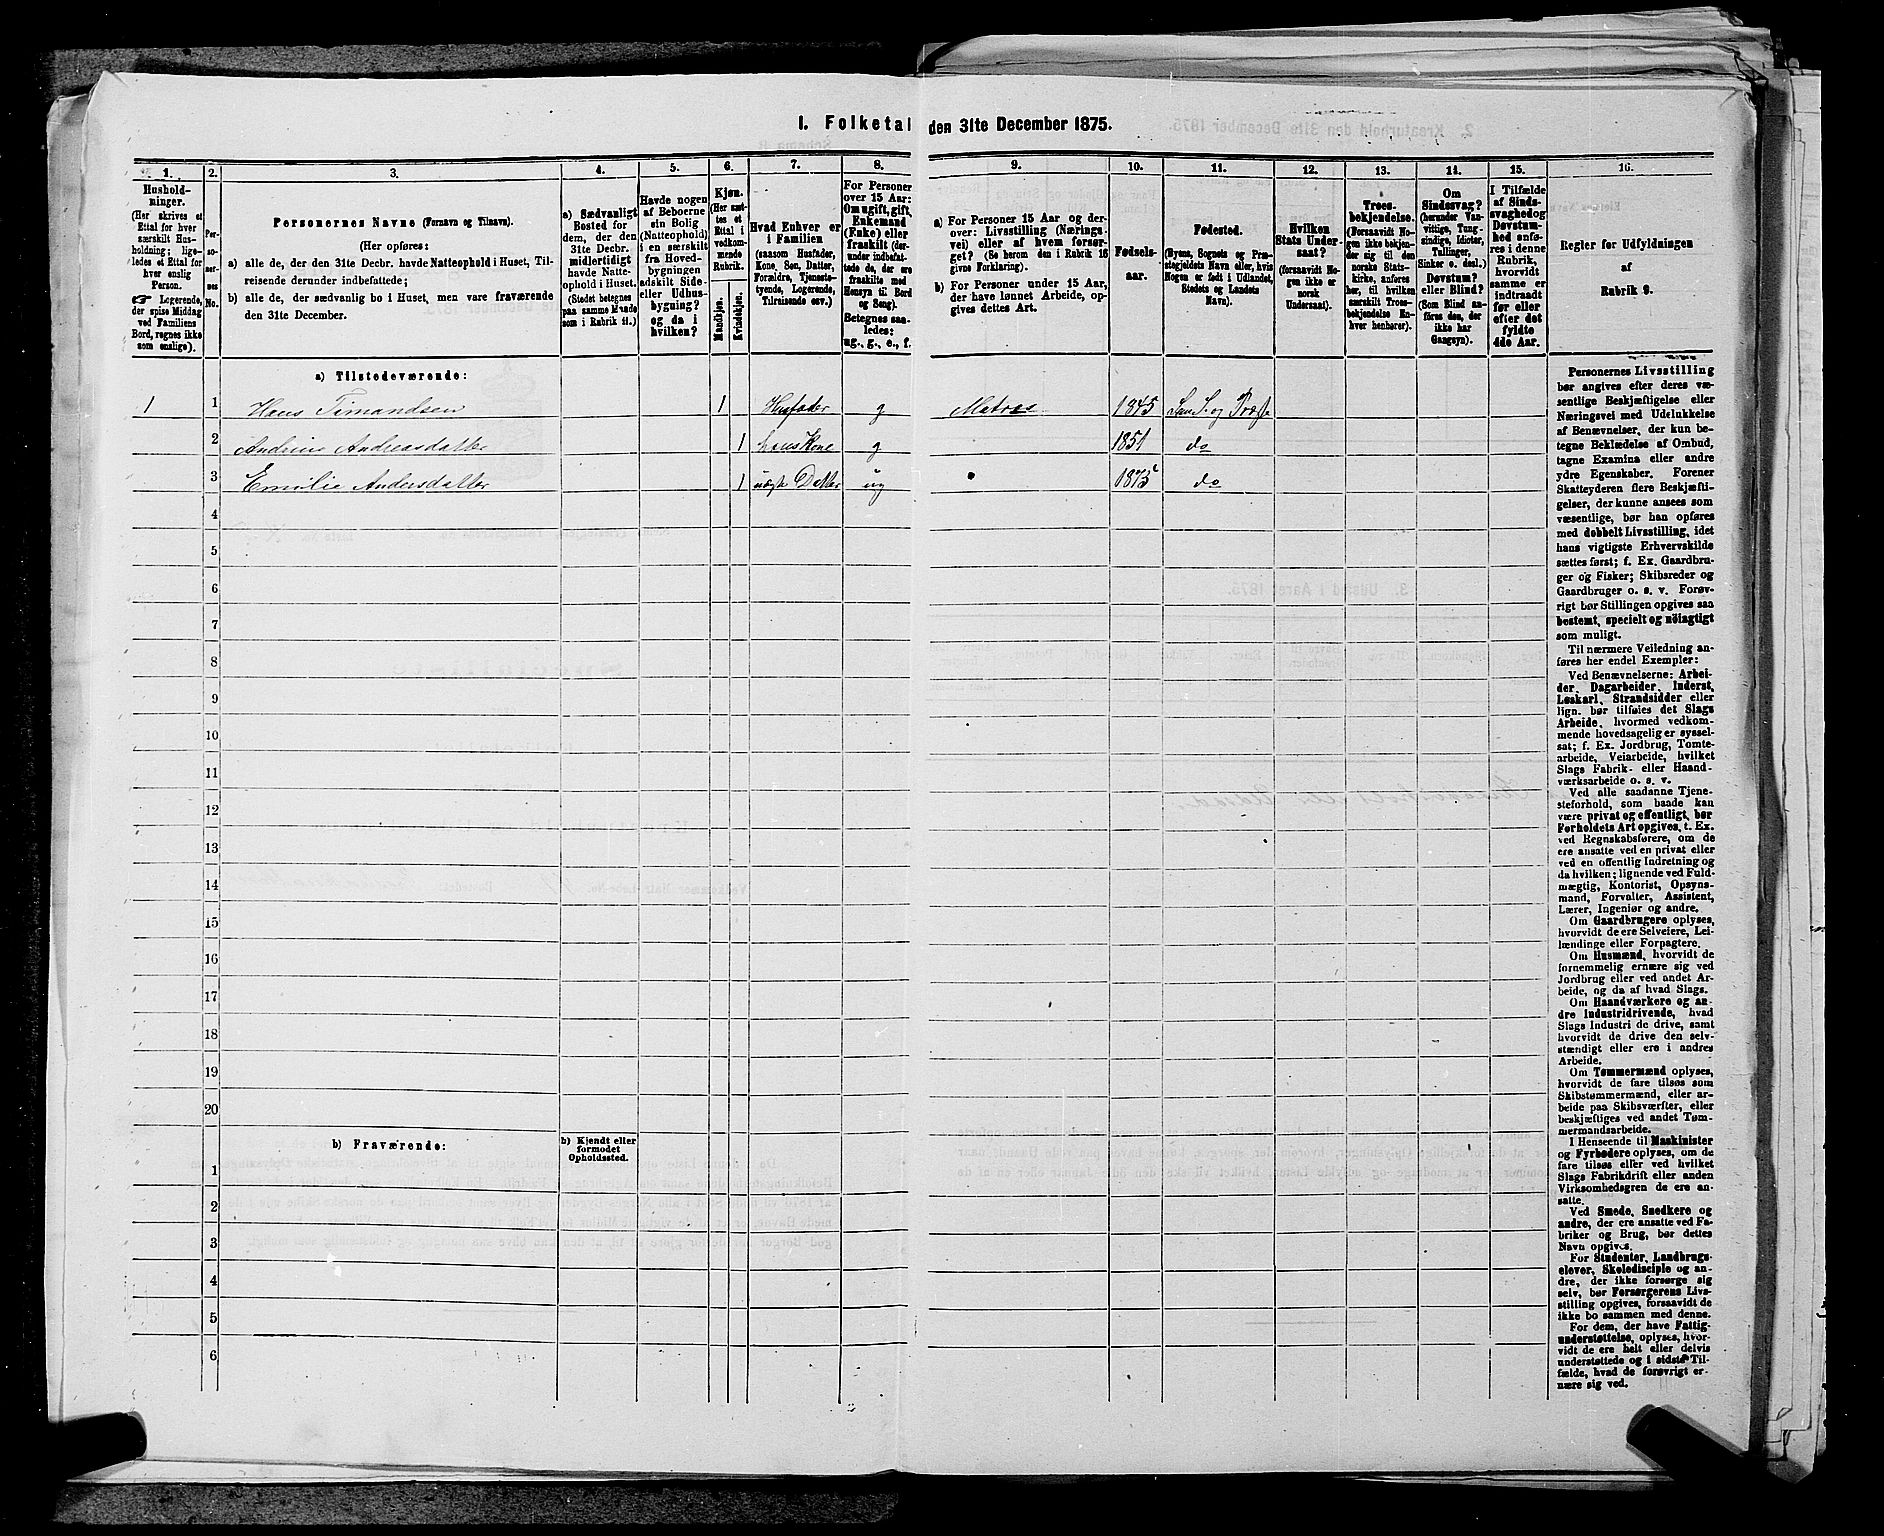 I. Folketal den 31te December 1875.
1.
Hushold-
ninger.
(Her skrives et
Ettal for hver
særskilt Hus-
holdning; lige-
ledes et Ettal for
hver enslig
Person.
☞ Logerende,
der spise Middag
ved Familiens
Bord, regnes ikke
som enslige).
2.
Per-
so-
ner-
nes
No.
3.
Personernes Navne (Fornavn og Tilnavn).
(Her opføres:
a) alle de, der den 31te Decbr. havde Natteophold i Huset, Til-
reisende derunder indbefattede;
b) alle de, der sædvanlig bo i Huset, men vare fraværende
den 31te December.
4.
a) Sædvanligt
Bosted for
dem, der den
31te Decbr.
midlertidigt
havde Natte-
ophold i Huset.
(Stedet betegnes
paa samme Maade
som i Rubrik 11.)
5.
Havde nogen
af Beboerne
sin Bolig
(Natteophold)
i en særskilt
fra Hoved-
bygningen
adskilt Side-
eller Udhus-
bygning?
og da i
hvilken?
6.
Kjøn.
(Her sæt-
tes et
Ettal i
vedkom-
mende
Rubrik.
Mandkjøn.
Kvindekjøn.
7.
Hvad Enhver er
i Familien
(saasom Husfader,
Kone, Søn, Datter,
Forældre, Tjeneste-
tyende, Logerende,
Tilreisende osv.)
8.
For Personer
over 15 Aar:
Om ugift, gift,
Enkemand
(Enke) eller
fraskilt (der-
under indbefat-
tede de, der ere
fraskilte med
Hensyn til Bord
og Seng).
Betegnes saa-
ledes:
ug., g., e., f.
9.
a) For Personer 15 Aar og der-
over: Livsstilling (Nærings-
vei) eller af hvem forsør-
get? (Se herom den i Rubrik 16
givne Forklaring).
b) For Personer under 15 Aar,
der have lønnet Arbeide, op-
gives dettes Art.
10.
Fødsels-
aar.
11.
Fødested.
(Byens, Sognets og Præ-
stegjeldets Navn eller, hvis
Nogen er født i Udlandet,
Stedets og Landets
Navn).
12.
Hvilken
Stats Under-
saat?
(forsaavidt No-
gen ikke er
norsk
Undersaat).
13.
Troes-
bekjendelse.
(Forsaavidt No-
gen ikke bekjen-
der sig til den
norske Stats-
kirke, anføres
her, til hvilken
særskilt Troes-
bekjendelse En-
hver henhører).
14.
Om
Sindssvag?
(herunder Van-
vittige, Tung-
sindige, Idioter,
Tullinger,
Sinker o. desl.)
Døvstum?
eller Blind?
(Som Blind an-
føres den, der
ikke har
Gangsyn).
15.
I Tilfælde
af Sinds-
svaghed og
Døvstum-
hed anfø-
res i denne
Rubrik,
hvorvidt
samme er
indtraadt
før eller
efter det
fyldte
4de Aar.
16.
Regler for Udfyldningen
af
Rubrik 9.
a) Tilstedeværende:
1 1 Hans Simandsen 1 Husfader g Matros 1845 San S. og Præst
2 Andrine Andreasdatter 1 hans Kone g 1851 do
3 Emilie Andersdatter 1 uægte Datter ug 1873 do
4
5
6
7
8
9
10
11
12
13
14
15
16
17
18
19
20
b) Fraværende:
b) Kjendt eller
formodet
Opholdssted.
1
2
3
4
5
6
Personernes Livsstilling
bør angives efter deres væ-
sentlige Beskjæftigelse eller
Næringsvei med Udelukkelse
af Benævnelser, der kun be-
tegne Beklædelse af Ombud,
tagne Examina eller andre
ydre Egenskaber. Forener
Skatteyderen flere Beskjæfti-
gelser, der kunne ansees som
væsentlige, bør han opføres
med dobbelt Livsstilling, idet
hans vigtigste Erhvervskilde
sættes først; f. Ex. Gaardbru-
ger og Fisker; Skibsreder og
Gaardbruger o. s. v. Forøv-
rigt bør Stillingen opgives saa
bestemt, specielt og nöiagtigt
som muligt.
Til nærmere Veiledning an-
føres her endel Exempler:
Ved Benævnelserne: Arbei-
der, Dagarbeider, Inderst,
Løskarl, Strandsidder eller
lign. bør tilføies det Slags
Arbeide, hvormed vedkom-
mende hovedsagelig er syssel-
sat; f. Ex. Jordbrug, Tomte-
arbeide, Veiarbeide, hvilket
Slags Fabrik- eller Haand-
værksarbeide o. s. v.
Ved alle saadanne Tjene-
steforhold, som baade kan
være privat og offentligt, bør
Forholdets Art opgives, t. Ex.
ved Regnskabsførere, om de
ere ansatte ved en privat eller
ved en offentlig Indretning og
da hvilken; lignende ved Fuld-
mægtig, Kontorist, Opsyns-
mand, Forvalter, Assistent,
Lærer, Ingeniør og andre.
Om Gaardbrugere oplyses,
hvorvidt de ere Selveiere, Lei-
lændinge eller Forpagtere.
Om Husmænd, hvorvidt de
fornemmelig ernære sig ved
Jordbrug eller ved andet Ar-
beide, og da af hvad Slags.
Om Haandværkere og an-
dre Industridrivende, hvad
Slags Industri de drive, samt
hvorvidt de drive den selv-
stændigt eller ere i andres
Arbeide.
Om Tømmermænd oplyses,
hvorvidt de fare tilsøs som
Skibstømmermænd, eller ar-
beide paa Skibsværfter, eller
beskjæftiges ved andet Tøm-
mermandsarbeide.
I Henseende til Maskinister
og Fyrbødere oplyses, om de
fare tilsøs eller ved hvilket
Slags Fabrikdrift eller anden
Virksomhedsgren de ere an-
satte.
Ved Smede, Snedkere og
andre, der ere ansatte ved Fa-
briker og Brug, bør dettes
Navn opgives.
For Studenter, Landbrugs-
elever, Skoledisciple og an-
dre, der ikke forsørge sig
selv, bør Forsørgerens Livs-
stilling opgives, forsaavidt de
ikke bo sammen med denne.
For dem, der have Fattig-
understøttelse, oplyses, hvor-
vidt de ere helt eller delvis
understøttede og i sidste Til-
fælde, hvad de forøvrigt er-
nære sig ved.